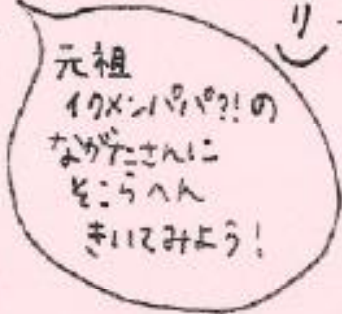 リ
元祖
イクメンパパ?!の
ながたさんに
そこらへん
きいてみよう!